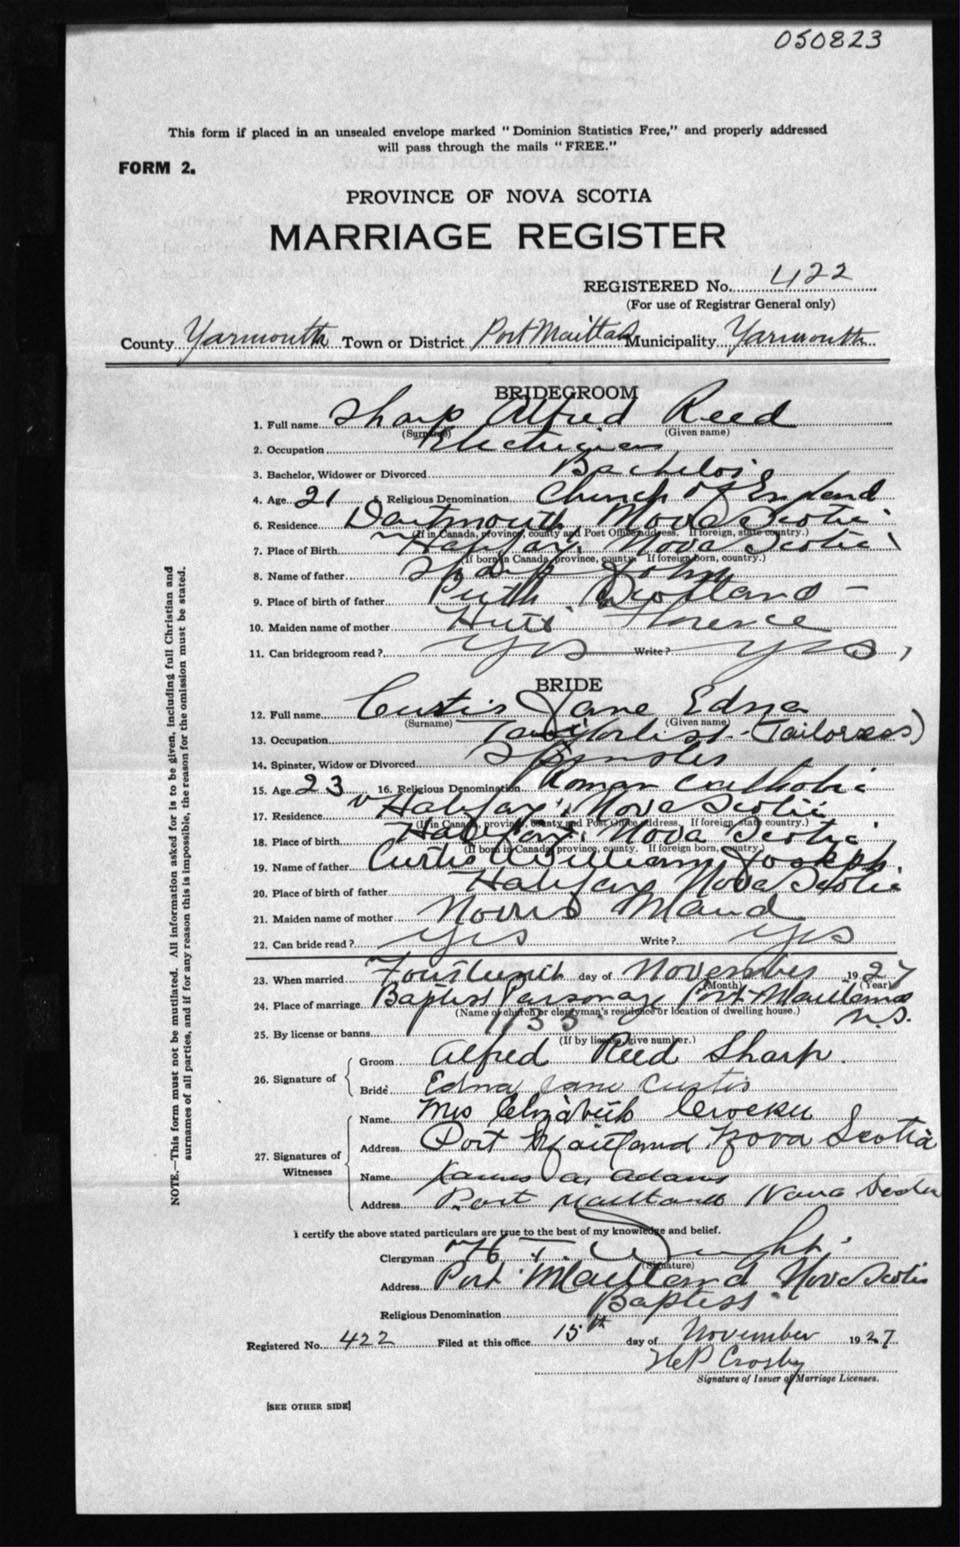 050823
This form if placed in an unsealed envelope marked "Dominion Statistics Free," and properly addressed
will pass through the mails "FREE."
FORM 2.
PROVINCE OF NOVA SCOTIA
MARRIAGE REGISTER
REGISTERED No. 422
(For use of Registrar General only)
County Yarmouth Town or District Port Maitland Municipality Yarmouth
BRIDEGROOM
1. Full name Sharp Alfred Reed
(Surname) (Given name)
2. Occupation Electrician
3. Bachelor, Widower or Divorced Bachelor
4. Age 21 Religious Denomination Church of England
6. Residence Dartmouth Nova Scotia
(If in Canada, province, county and Post Office address. If foreign, state country.)
7. Place of Birth Halifax, Nova Scotia
(If born in Canada, province, county. If foreign born, country.)
8. Name of father Sharp John
9. Place of birth of father Perth Scotland
10. Maiden name of mother Florence
11. Can bridegroom read? Yes Write? Yes,
BRIDE
12. Full name Curtis Jane Edna
(Surname) (Given name)
13. Occupation (Tailoress)
14. Spinster, Widow or Divorced Spinster
15. Age 23 16. Religious Denomination Roman Catholic
17. Residence Halifax, Nova Scotia
(If in Canada, province, county and Post Office address, If foreign, state country.)
18. Place of birth Halifax, Nova Scotia
(If born in Canada, province, county. If foreign born, country.)
19. Name of father Curtis William Joseph
20. Place of birth of father Halifax Nova Scotia
21. Maiden name of mother Norris Maud
22. Can bride read? Yes Write? Yes
23. When married Fourteenth day of November 1927
(Month) (Year)
24. Place of marriage Baptist Parsonage Port Maitland
N.S.
(Name of church or clergyman's residence or location of dwelling house.)
25. By license or banns 133
(If by license, give number.)
26. Signature of
Groom Alfred Reed Sharp.
Bride Edna Jane Curtis
27. Signatures of
Witnesses
Name Mrs Elizabeth Crocker
Address Port Maitland Nova Scotia
Name James A. Adams
Address Port Maitland Nova Scotia
I certify the above stated particulars are true to the best of my knowledge and belief.
Clergyman
(Signature)
Address Port Maitland Nova Scotia
Religious Denomination Baptist
Registered No. 422 Filed at this office 15th day of November 1927
H P Crosby
Signature of Issuer of Marriage Licenses.
[SEE OTHER SIDE]
NOTE.—This form must not be mutilated. All information asked for is to be given, including full Christian and
surnames of all parties, and if for any reason this is impossible, the reason for the omission must be stated.